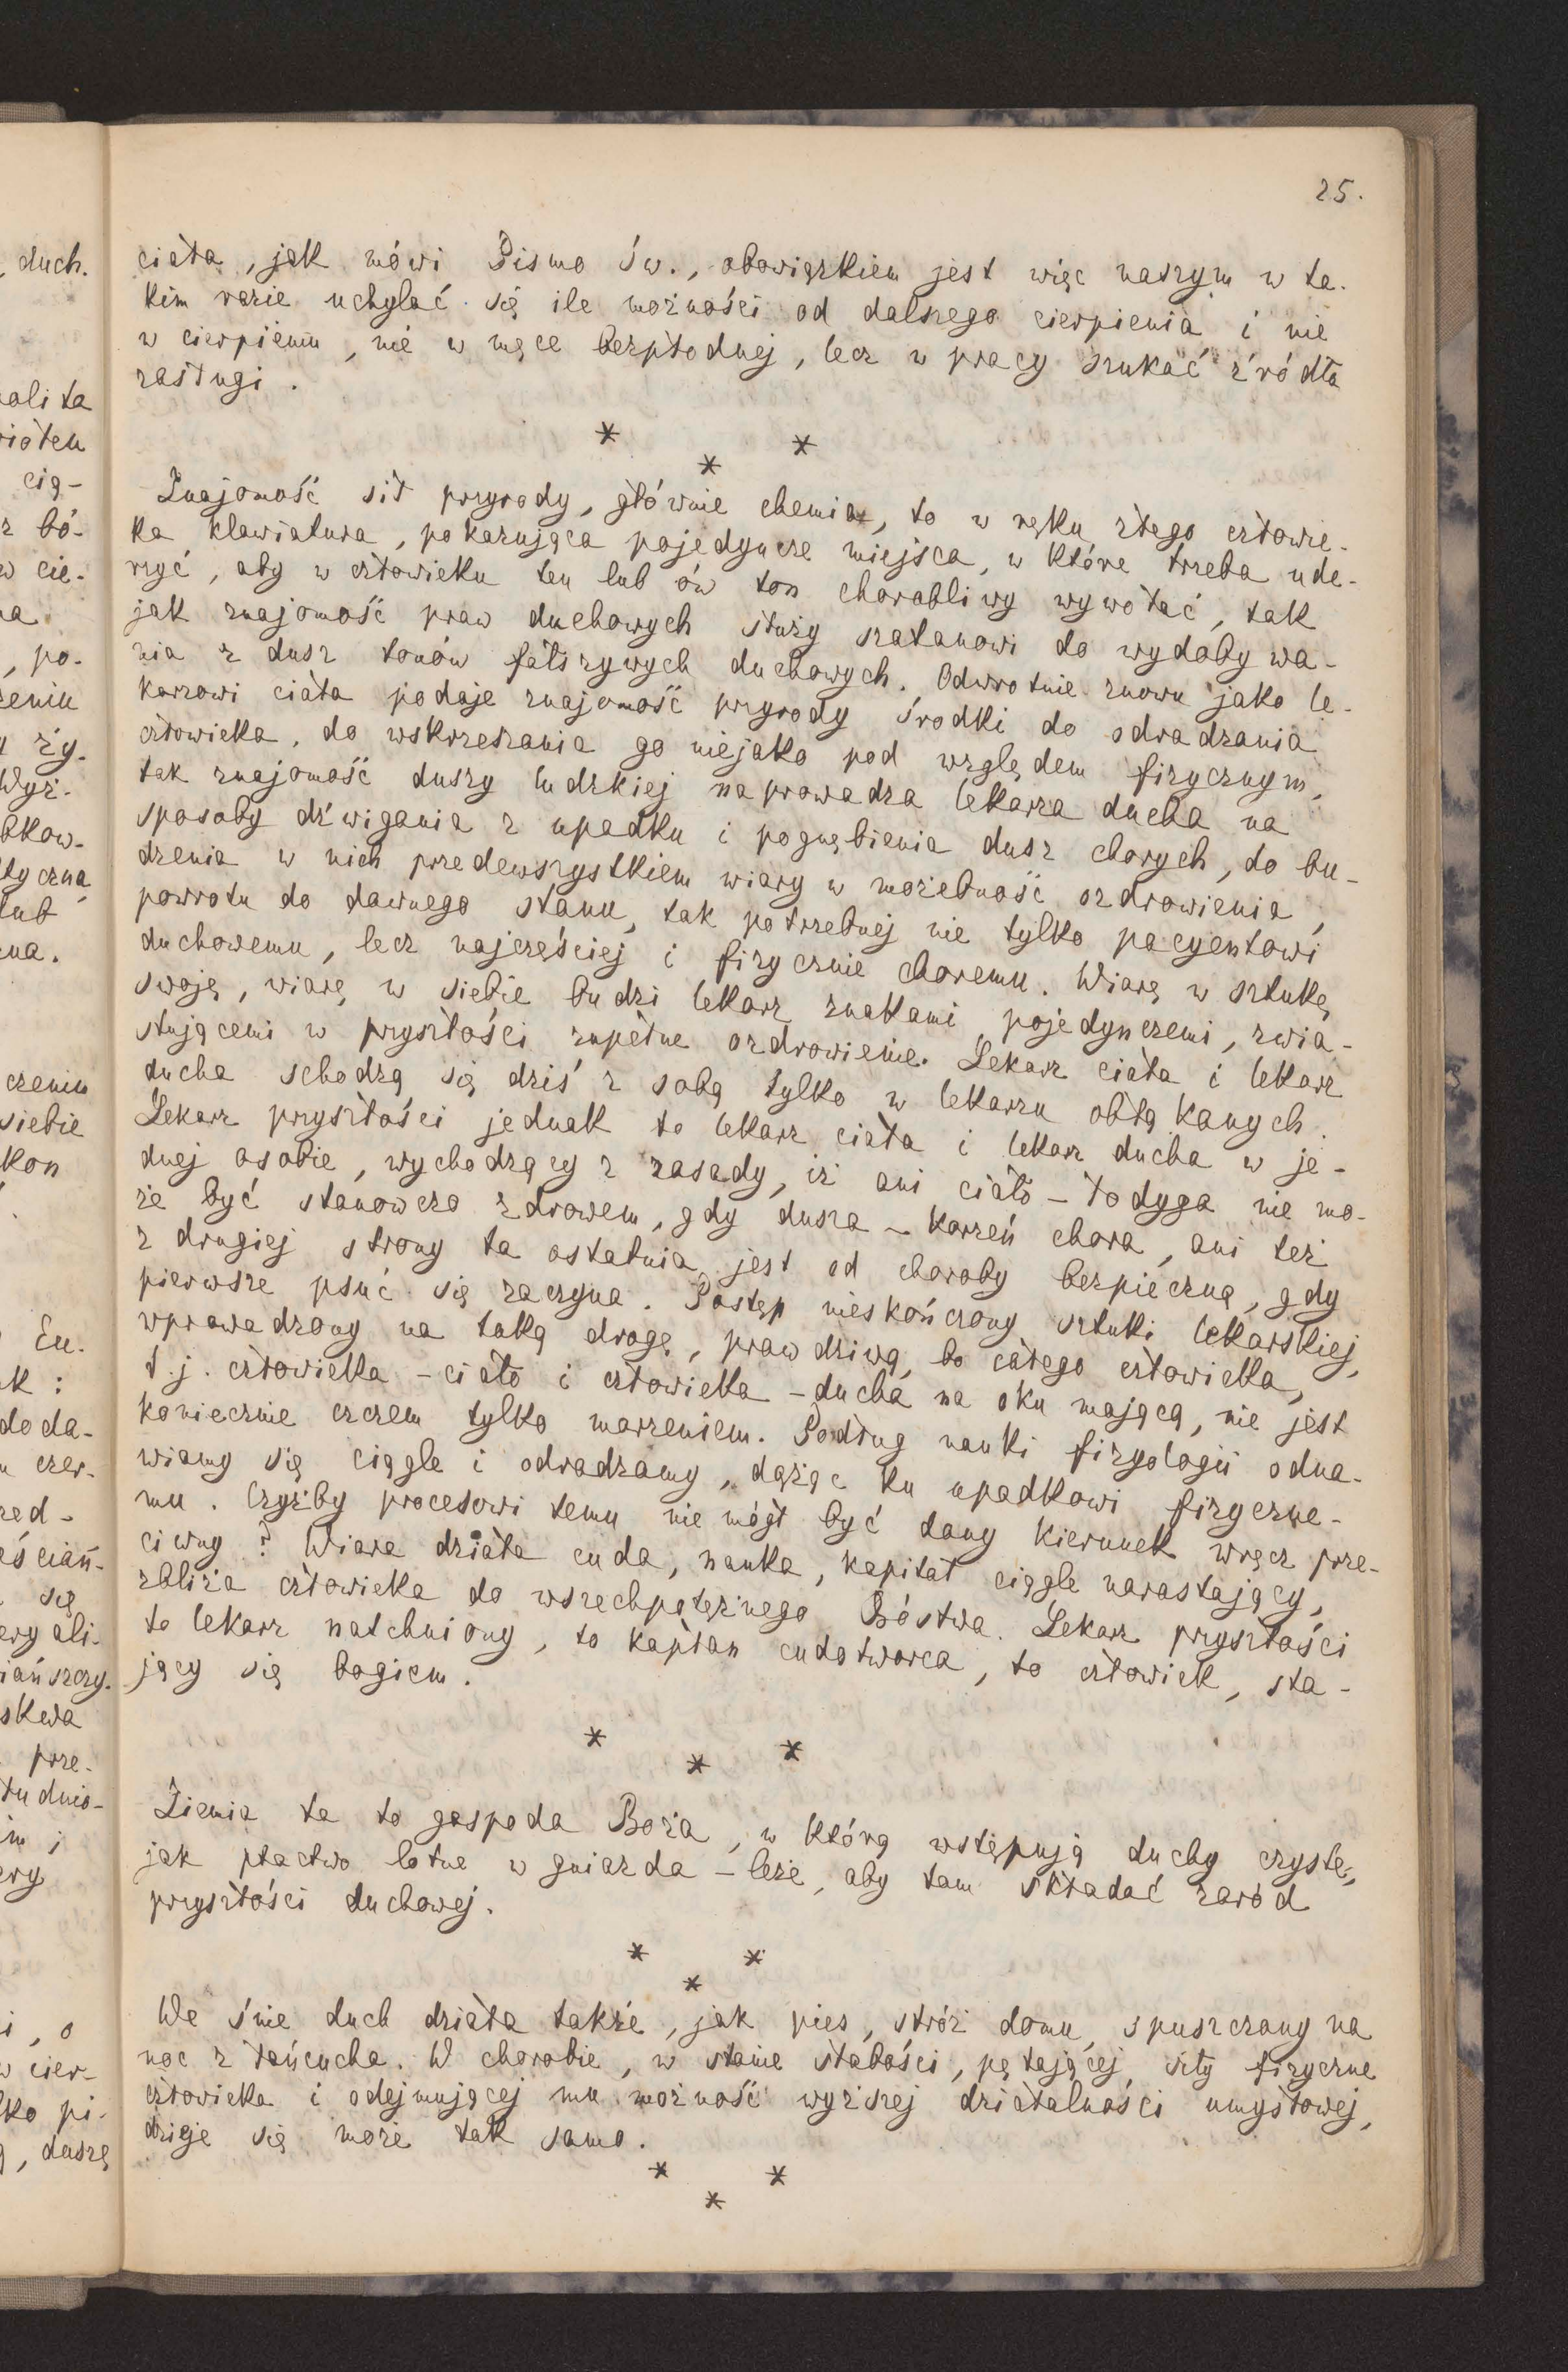 25.
ciała, jak mówi Pismo św., obowiązkiem jest więc naszym w ta-
kim razie uchylać się ile możności od dalszego cierpienia i nie
w cierpieniu, nie w męce bezpłodnej, lecz w pracy szukać źródła
zasługi.
* * *
Znajomość sił przyrody, głównie chemia, to w ręku złego człowie-
ka klawiatura, pokazująca pojedyncze miejsca, w które trzeba ude-
rzyć, aby w człowieku ten lub ów ton chorobliwy wywołać, tak
jak znajomość praw duchowych służy szatanowi do wydobywa-
nia z dusz tonów fałszywych duchowych. Odwrotnie znowu jako le-
karzowi ciała podaje znajomość przyrody środki do odradzania
człowieka, do wskrzeszania go niejako pod względem fizycznym,
tak znajomość duszy ludzkiej naprowadza lekarza ducha na
sposoby dźwigania z upadku i pognębienia dusz chorych, do bu-
dzenia w nich przedewszystkiem wiary w możebność ozdrowienia,
powrotu do dawnego stanu, tak potrzebnej nie tylko pacyentowi
duchowemu, lecz najczęściej i fizycznie choremu. Wiarę w sztukę
swoję, wiarę w siebie budzi lekarz znakami pojedynczemi, zwia-
stującemi w przyszłości zupełne ozdrowienie. Lekarz ciała i lekarz
ducha schodzą się dziś z sobą tylko w lekarzu obłąkanych.
Lekarz przyszłości jednak to lekarz ciała i lekarz ducha w je-
dnej osobie, wychodzący z zasady, iż ani ciało – łodyga nie mo-
że być stanowczo zdrowem, gdy dusza – korzeń chora, ani też
z drugiej strony ta ostatnia jest od choroby bezpieczną, gdy
pierwsze psuć się zaczyna. Postęp nieskończony sztuki lekarskiej,
wprowadzony na taką drogę, prawdziwą, bo całego człowieka,
t.j. człowieka – ciało i człowieka – ducha na oku mającą, nie jest
koniecznie czczem tylko marzeniem. Podług nauki fizyologii odna-
wiamy się ciągle i odradzamy, dążąc ku upadkowi fizyczne-
mu. Czyżby procesowi temu nie mógł być dany kierunek wręcz prze-
ciwny? Wiara działa cuda, nauka, kapitał ciągle narastający,
zbliża człowieka do wszechpotężnego Bóstwa. Lekarz przyszłości
to lekarz natchniony, to kapłan cudotworca, to człowiek, sta-
jący się bogiem.
* * *
Ziemia ta to gospoda Boża, w którą wstępują duchy czyste,
jak ptactwo lotne w gniazda – leże, aby tam składać zaród
przyszłości duchowej.
* * *
We śnie duch działa także, jak pies, stróż domu, spuszczany na
noc z łańcucha. W chorobie, w stanie słabości, pętającej siły fizyczne
człowieka i odejmującej mu możność wyższej działalności umysłowej,
dzieje się może tak samo.
* * *